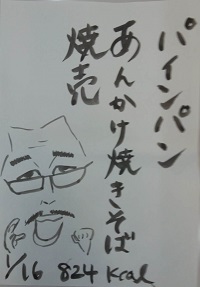 パインパン
あんかけ焼きそば
焼売
1/16 824 kcal